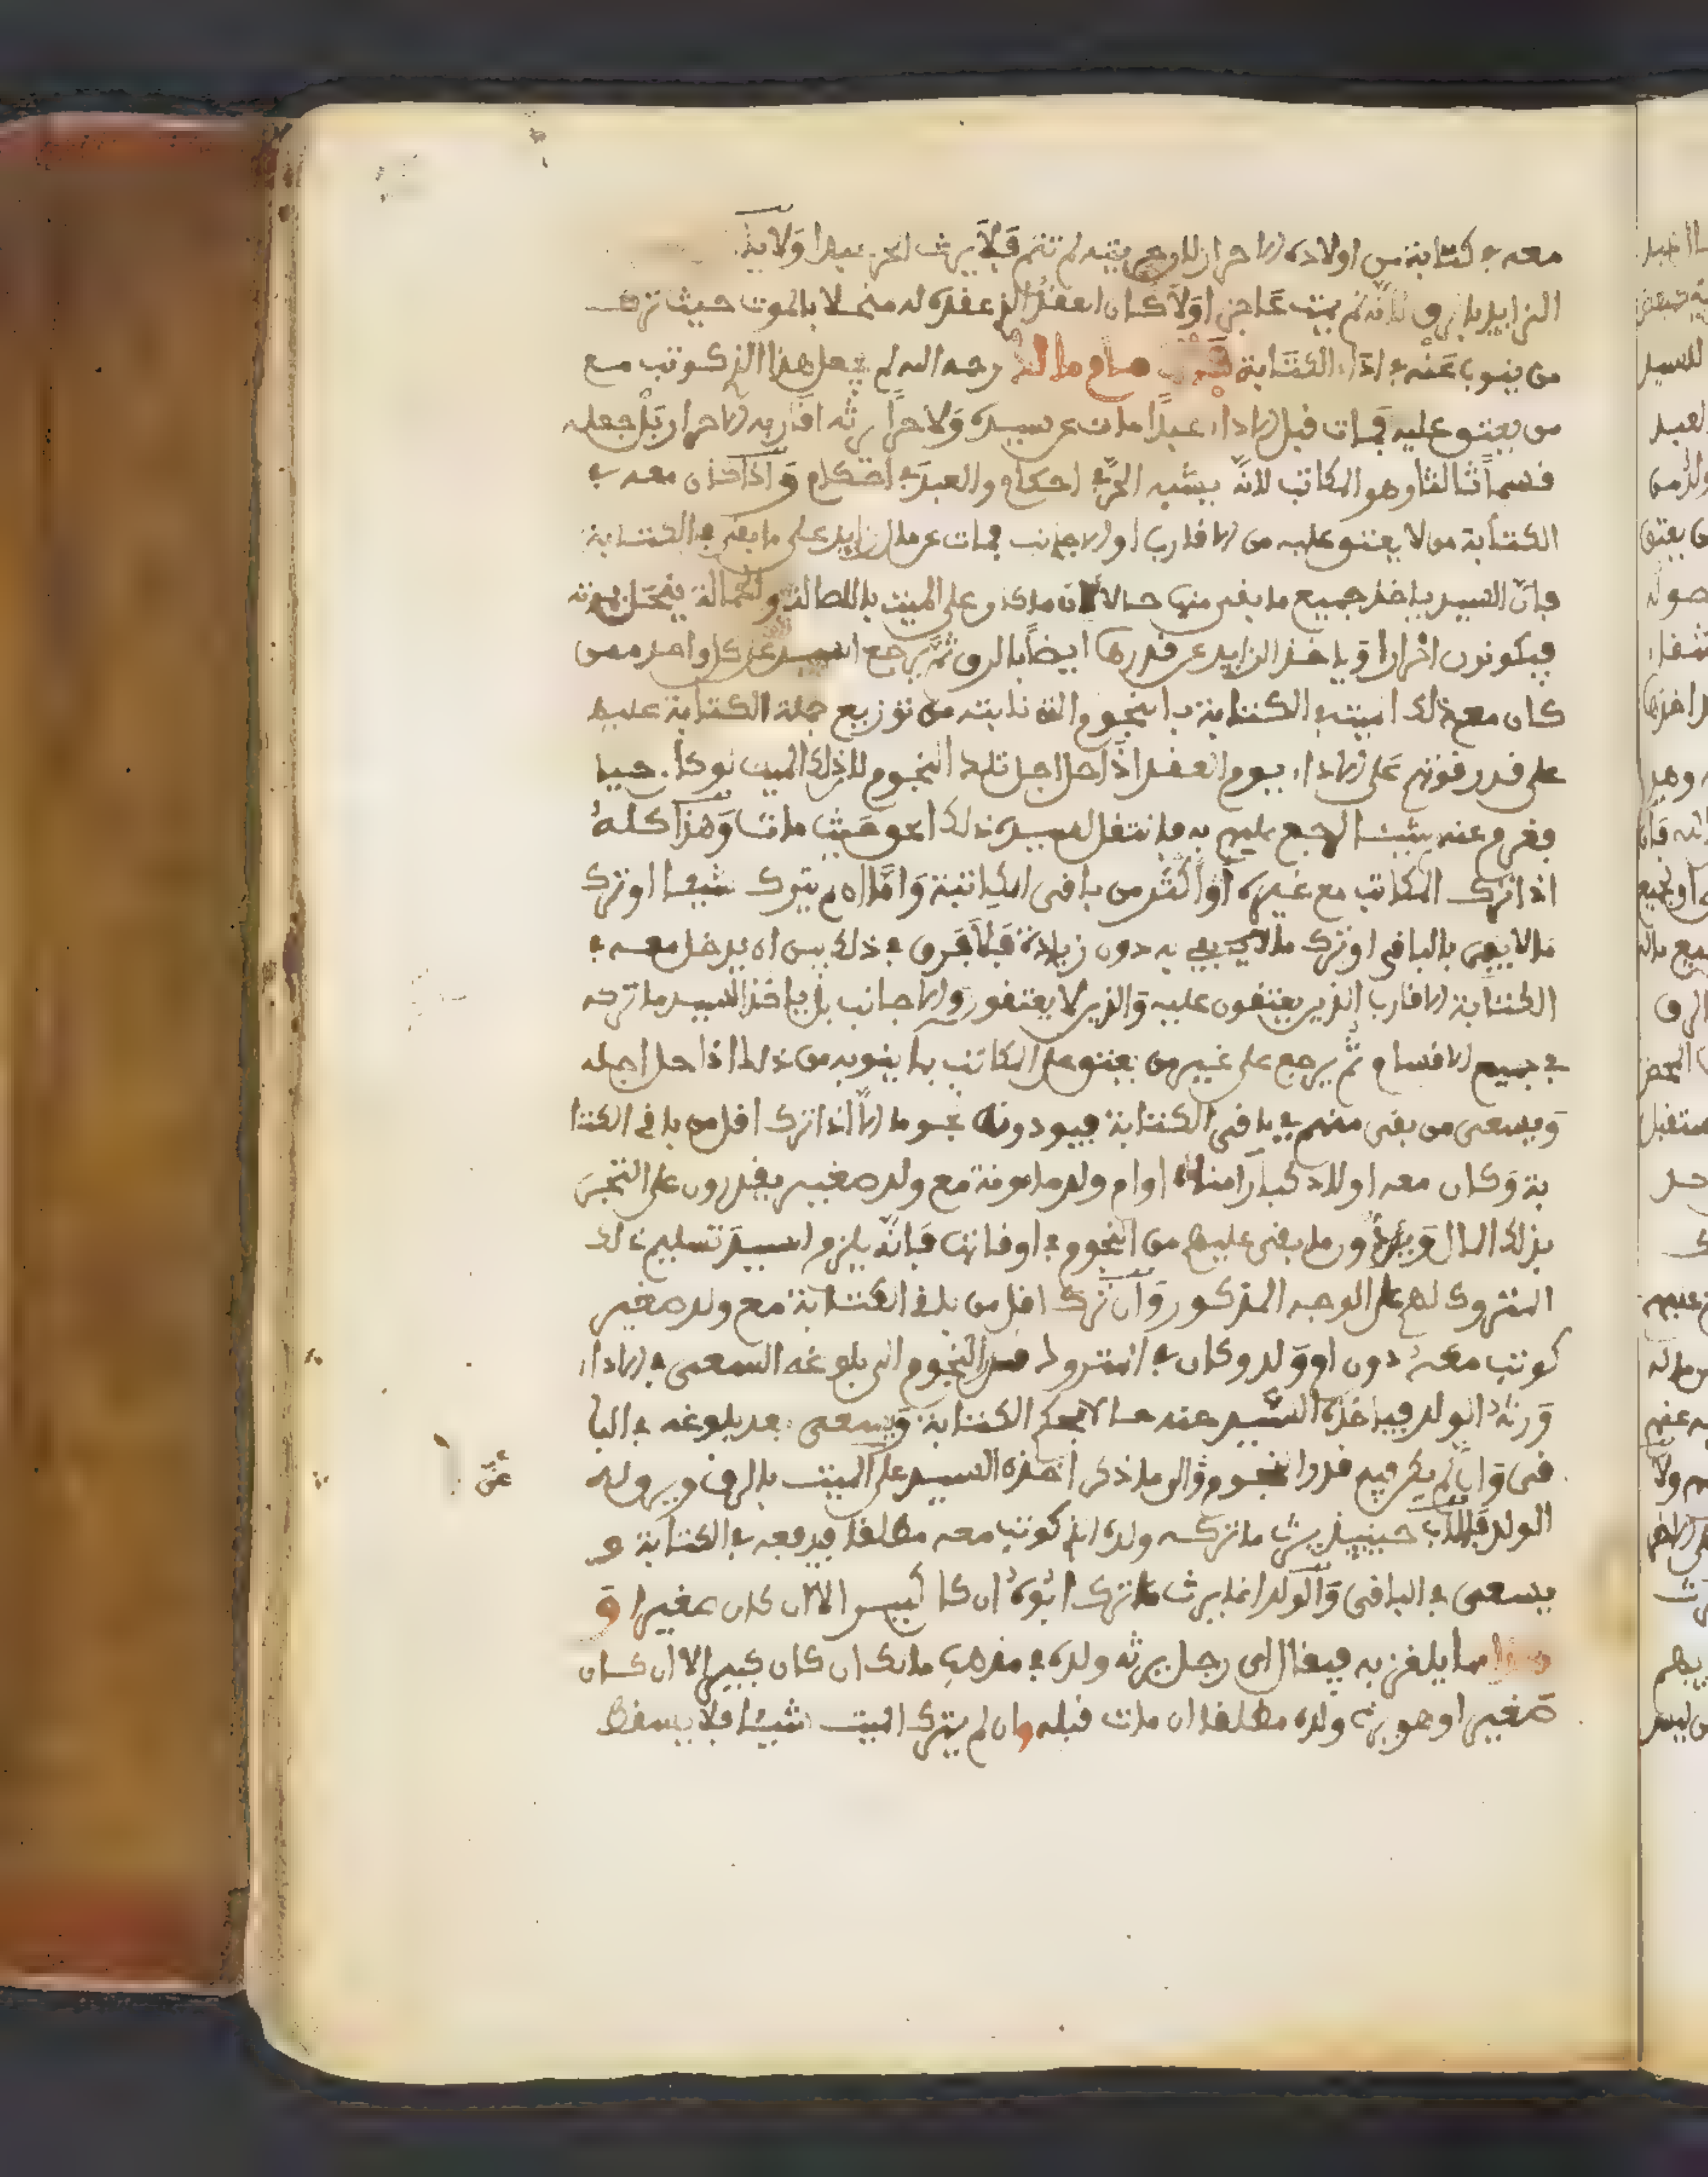 معه في كتابته من اولاده الاحرار لان حريته لم تتم فلا يرث الحر عبدا ولا ياخذ
الزايد بالرق لانه لم يمت عاجزا ولا كان العقد الذي عقده له منحلا بالموت حيث ترك
من ينوب عنه في اداء الكتابة مالك رحمه الله لم يجعل هذا الذي كوتب مع
من يعتق عليه فمات قبل الاداء عبدا مات عن سيده ولا حرا يرثه اقاربه الاحرار بل جعله
قسما ثالثا وهو المكاتب لانه يشبه الحر في احكام والعبد في احكام واذا كان معه في
الكتابة من لا يعتق عليه من الاقارب او الاجانب فمات عن مال زايد على ما بقي في الكتابة
فان السيد ياخذ جميع ما بقي منها حالا على الميت بالاصالة والحمالة
فيكونون احرارا وياخذ الزايد عن قدرها ايضا بالرق ثم يرجع السيد على كل واحد ممن
كان مع ذلك الميت في الكتابة بالنجوم من توزيع جملة الكتابة عليهم
على قدر قوتهم على الاداء يوم العقد اذا حل اجل تلك النجوم لان ذلك الميت لو كان حيا
وغرم عنه شيئا لرجع عليهم به فانتقل لسيده ذلك وهذا كله
اذا ترك المكاتب مع غيره او اكثر من باقي الكتابة واما ان لم يترك شيئا او ترك
ما لا يفي بالباقي او ترك ما يفي به دون زيادة فلا فرق في ذلك بين ان يدخل معه في
الكتابة الاقارب الذين يعتقون عليه والذين لا يعتقون والاجانب بل ياخذ السيد ما تركه
في جميع الاقسام ثم يرجع على غير من يعتق على المكاتب بما ينوبه من ذلك اذا حل اجله
ويسعى من بقي منهم في باقي الكتابة فيودونه نجوما اذا ترك اقل من باقي الكتا
بة وكان معه اولاد كبار امناء او ام ولد مامونة مع ولد صغير يقدرون على التجر
بذلك المال ويودون ما بقي عليهم من النجوم في اوقاتها فانه يلزم السيد تسليم ذلك
المتروك لهم على الوجه المذكور وان ترك اقل من باقي الكتابة مع ولد صغير
كوتب معه دون ام ولد وكان في المتروك قدر النجوم الى بلوغه السعي في الاداء
ورثه الولد فياخذه السيد عنه حالا بحكم الكتابة ويسعى بعد بلوغه في البا
قي وان لم يكن فيه قدر النجوم الى ما ذكر اخذه السيد على الميت بالرق ويرق له
الولد فالاب حينيذ يرث ما تركه ولده الذي كوتب معه مطلقا فيدفعه في الكتابة و
يسعى في الباقي والولد انما يرث ما ترك ابوه ان كان كبيرا لا ان كان صغيرا و
مما يلغز به فيقال اي رجل يرثه ولده في مذهب مالك ان كان كبيرا لا ان كان
صغيرا وهو يرث ولده مطلقا ان مات قبله وان لم يترك الميت شيئا فلا يسقط